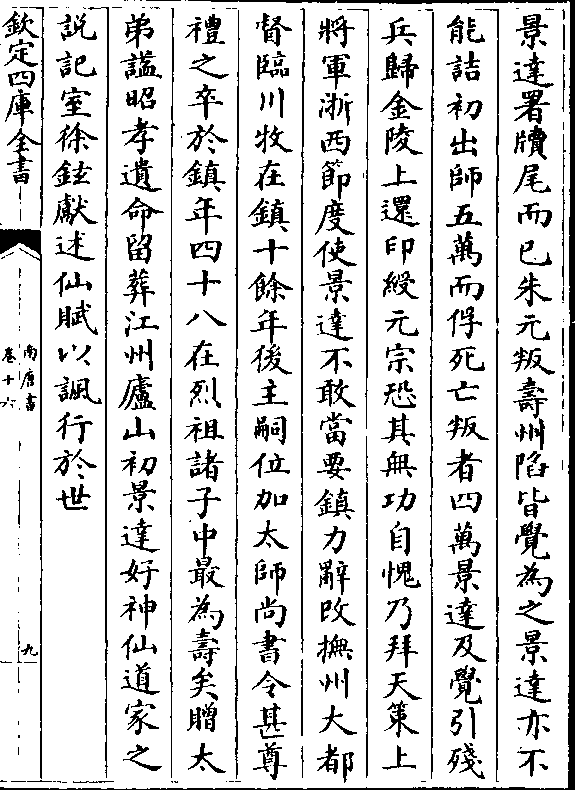 景達署牘尾而已朱元叛壽州陷皆覺為之景達亦不
能詰初出師五萬而俘死亡叛者四萬景達及覺引殘
兵歸金陵上還印綬元宗恐其無功自愧乃拜天策上
將軍浙西節度使景達不敢當要鎮力辭改撫州大都
督臨川牧在鎮十餘年後主嗣位加太師尚書令甚尊
禮之卒於鎮年四十八在烈祖諸子中最為壽矣贈太
弟諡昭孝遺命留葬江州廬山初景達好神仙道家之
説記室徐鉉獻述仙賦以諷行於世
欽定四庫全書
南唐書
卷十六
九